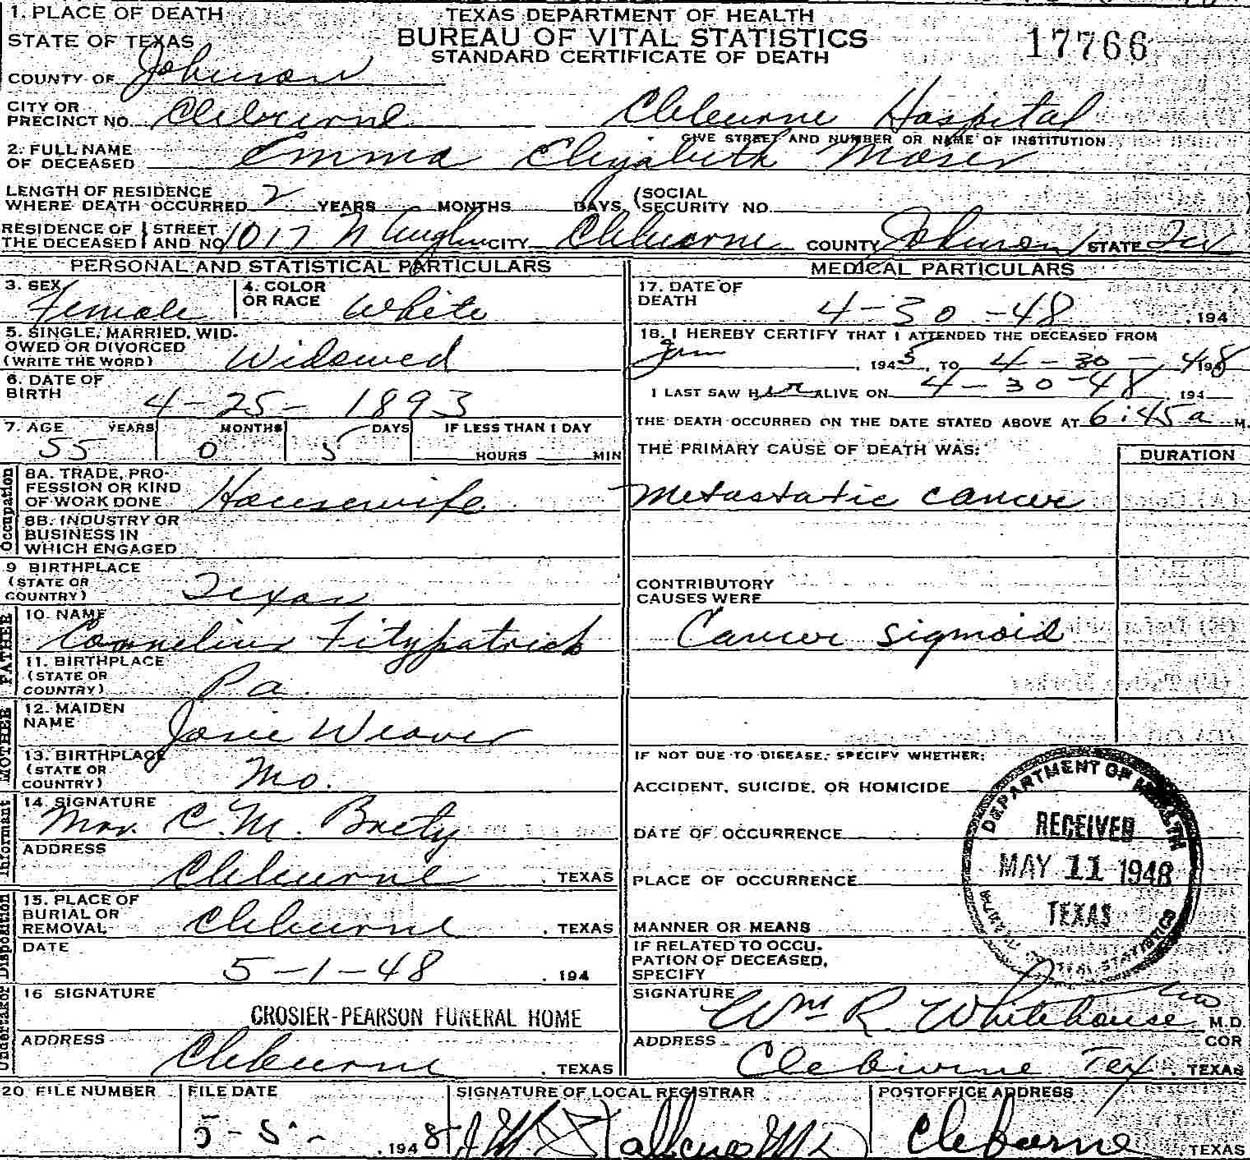 1. PLACE OF DEATH
STATE OF TEXAS
TEXAS DEPARTMENT OF HEALTH
BUREAU OF VITAL STATISTICS
STANDARD CERTIFICATE OF DEATH
17766
COUNTY OF Johnson
CITY OR PRECINCT NO. Cleburne Cleburne Hospital
GIVE STREET AND NUMBER OR NAME OF INSTITUTION
2. FULL NAME OF DECEASED Emma Elizabeth Moser
LENGTH OF RESIDENCE WHERE DEATH OCCURRED 2 YEARS MONTHS DAYS (SOCIAL SECURITY NO.
RESIDENCE OF THE DECEASED STREET AND NO. 1017 N CITY Cleburne COUNTY Johnson STATE Tex
PERSONAL AND STATISTICAL PARTICULARS
3. SEX Female
4. COLOR OR RACE White
5. SINGLE, MARRIED, WIDOWED OR DIVORCED (WRITE THE WORD) Widowed
6. DATE OF BIRTH 4-25-1893
7. AGE YEARS MONTHS DAYS IF LESS THAN 1 DAY
55 0 5 HOURS MIN
Occupation
8A. TRADE, PROFESSION OR KIND OF WORK DONE Housewife
8B. INDUSTRY OR BUSINESS IN WHICH ENGAGED
9 BIRTHPLACE (STATE OR COUNTRY) Texas
FATHER
10. NAME Cornelius Fitzpatrick
11. BIRTHPLACE (STATE OR COUNTRY) Pa
MOTHER
12. MAIDEN NAME Josie Weaver
13. BIRTHPLACE (STATE OR COUNTRY) Mo.
Informant
14. SIGNATURE Mrs. C. M.
ADDRESS Cleburne, TEXAS
Disposition
15. PLACE OF BURIAL OR REMOVAL Cleburne, TEXAS
DATE 5-1-48, 194
Undertaker
16 SIGNATURE CROSIER-PEARSON FUNERAL HOME
ADDRESS Cleburne, TEXAS
MEDICAL PARTICULARS
17. DATE OF DEATH 4-30-48, 194
18. I HEREBY CERTIFY THAT I ATTENDED THE DECEASED FROM
Jan, 1945, TO 4-30-48 194
I LAST SAW Her ALIVE ON 4-30-48, 194
THE DEATH OCCURRED ON THE DATE STATED ABOVE AT 6:45a M.
THE PRIMARY CAUSE OF DEATH WAS: DURATION
metastatic cancer
CONTRIBUTORY CAUSES WERE
Cancer sigmoid
IF NOT DUE TO DISEASE, SPECIFY WHETHER:
ACCIDENT, SUICIDE, OR HOMICIDE
DATE OF OCCURRENCE
PLACE OF OCCURRENCE
MANNER OR MEANS
IF RELATED TO OCCUPATION OF DECEASED, SPECIFY
DEPARTMENT OF HEALTH
RECEIVED
MAY 11 1948
TEXAS
VITAL STATISTICS
SIGNATURE Wm R. Whitehouse M.D.
COR
ADDRESS Cleburne Tex TEXAS
20 FILE NUMBER
FILE DATE 5-5-, 1948
SIGNATURE OF LOCAL REGISTRAR
POSTOFFICE ADDRESS Cleburne TEXAS